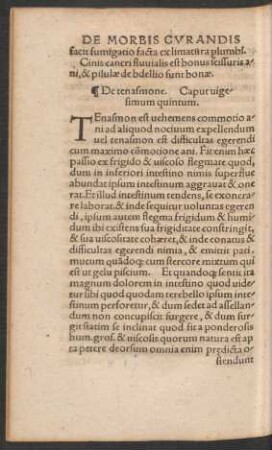 DE MORBIS CVRANDIS
facit fumigatio facta ex limatura plumbi.
Cinis cancri fluuialis est bonus scissuris a
ni, & pilulæ de bdellio sunt bonæ.
¶ De tenasmone. Caput uige-
simum quintum.
TEnasmon est uehemens commotio a
ni ad aliquod nociuum expellendum
uel tenasmon est difficultas egerendi
cum maximo cōmotione ani. Fit enim hæc
passio ex frigido & uiscoso flegmate quod,
dum in inferiori intestino nimis superflue
abundat ipsum intestinum aggrauat & one
rat. Et illud intestinum tendens, se exonera-
re laborat. & inde sequitur uoluntas egeren
di, ipsum autem flegma frigidum & humi-
dum ibi existens sua frigiditate constringit,
& sua uiscositate cohæret, & inde conatus &
difficultas egerendi nimia, & emittit pati.
mucum quādoq; cum stercore mixtum qui
est ut gelu piscium. Et quandoq; sentit ita
magnum dolorem in intestino quod uide/
tur sibi quod quodam terebello ipsum inte
stinum perforetur, & dum sedet ad assellan-
dum non concupiscit surgere, & dum sur-
git statim se inclinat quod fit a ponderosis
hum. gros. & uiscosis quorum natura est ap
ta petere deorsum omnia enim predicta o/
stendunt